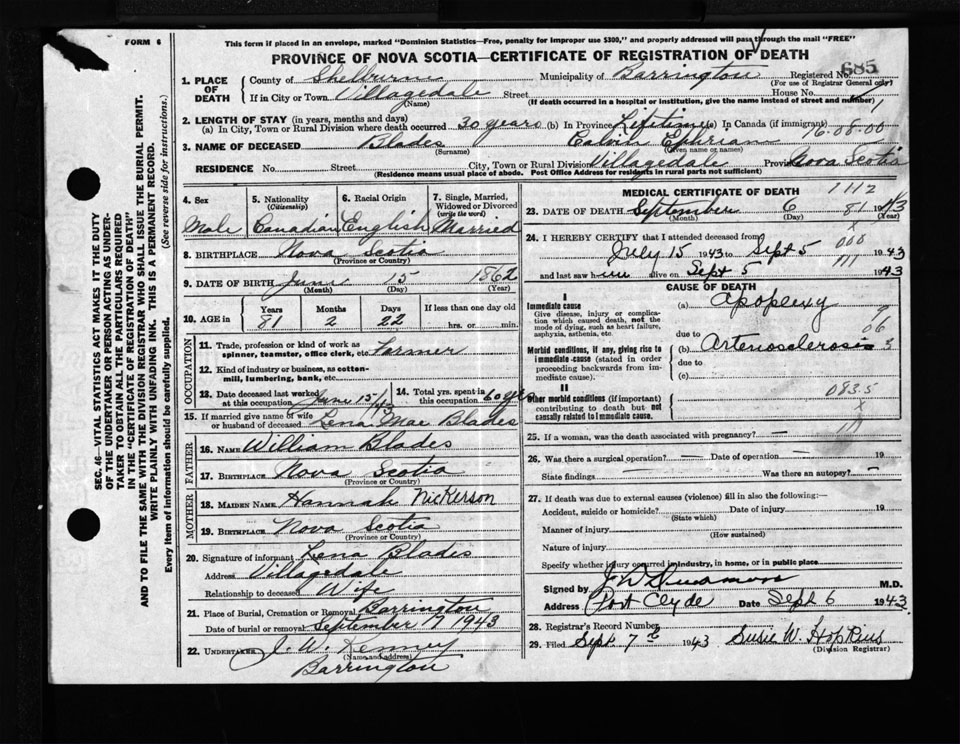 FORM 6
This form if placed in an envelope, marked "Dominion Statistics—Free, penalty for improper use $300," and properly addressed will pass through the mail "FREE"
PROVINCE OF NOVA SCOTIA—CERTIFICATE OF REGISTRATION OF DEATH
685
1. PLACE OF DEATH
County of Shelburne Municipality of Barrington Registered No.
(For use of Registrar General only)
If in City or Town Villagedale Street House No.
(Name) (If death occurred in a hospital or institution, give the name instead of street and number)
2. LENGTH OF STAY (in years, months and days)
(a) In City, Town or Rural Division where death occurred 30 years (b) In Province Lifetime (c) In Canada (if immigrant)
16-08-00
3. NAME OF DECEASED Blades Calvin Ephriam
(Surname) (Given name or names)
RESIDENCE No. Street City, Town or Rural Division Villagedale Province Nova Scotia
(Residence means usual place of abode. Post Office Address for residents in rural parts not sufficient)
4. Sex
Male
5. Nationality
(Citizenship)
Canadian
6. Racial Origin
English
7. Single, Married, Widowed or Divorced
(write the word)
Married
8. BIRTHPLACE Nova Scotia
(Province or Country)
9. DATE OF BIRTH June 15 1862
(Month) (Day) (Year)
10. AGE in
Years Months Days If less than one day old
81 2 22 hrs. or min.
OCCUPATION
11. Trade, profession or kind of work as spinner, teamster, office clerk, etc. Farmer
12. Kind of industry or business, as cotton-mill, lumbering, bank, etc.
13. Date deceased last worked at this occupation June 15
14. Total yrs. spent in this occupation 60 yrs
15. If married give name of wife or husband of deceased Lena Mae Blades
FATHER
16. NAME William Blades
17. BIRTHPLACE Nova Scotia
(Province or Country)
MOTHER
18. MAIDEN NAME Hannah Nickerson
19. BIRTHPLACE Nova Scotia
(Province or Country)
20. Signature of informant Lena Blades
Address Villagedale
Relationship to deceased Wife
21. Place of Burial, Cremation or Removal Barrington
Date of burial or removal September 7 1943
22. UNDERTAKER J. W. Kenney
(Name and address)
Barrington
MEDICAL CERTIFICATE OF DEATH
1112
23. DATE OF DEATH September 6 81 1943
(Month) (Day) (Year)
24. I HEREBY CERTIFY that I attended deceased from
July 15 1943 to Sept 5 1943
000
and last saw him alive on Sept 5 1943
111
CAUSE OF DEATH
I
Immediate cause
Give disease, injury or complication which caused death, not the mode of dying, such as heart failure, asphyxia, asthenia, etc.
(a) Apoplexy
due to
06
Morbid conditions, if any, giving rise to immediate cause (stated in order proceeding backwards from immediate cause).
(b) Arteriosclerosis 3
due to
(c)
II
Other morbid conditions (if important) contributing to death but not causally related to immediate cause.
083.5
X
25. If a woman, was the death associated with pregnancy? —
26. Was there a surgical operation? — Date of operation — 19
State findings Was there an autopsy? —
27. If death was due to external causes (violence) fill in also the following:—
Accident, suicide or homicide? Date of injury 19
(State which)
Manner of injury
(How sustained)
Nature of injury
Specify whether injury occurred in industry, in home, or in public place
Signed by M.D.
Address Port Clyde Date Sept 6 1943
28. Registrar's Record Number
29. Filed Sept 7th 1943 Susie W. Hopkins
(Division Registrar)
SEC. 46—VITAL STATISTICS ACT MAKES IT THE DUTY
OF THE UNDERTAKER OR PERSON ACTING AS UNDER-
TAKER TO OBTAIN ALL THE PARTICULARS REQUIRED
IN THE "CERTIFICATE OF REGISTRATION OF DEATH"
AND TO FILE THE SAME WITH THE DIVISION REGISTRAR WHO SHALL ISSUE THE BURIAL PERMIT.
WRITE PLAINLY WITH UNFADING INK. THIS IS A PERMANENT RECORD.
Every item of information should be carefully supplied. (See reverse side for instructions.)